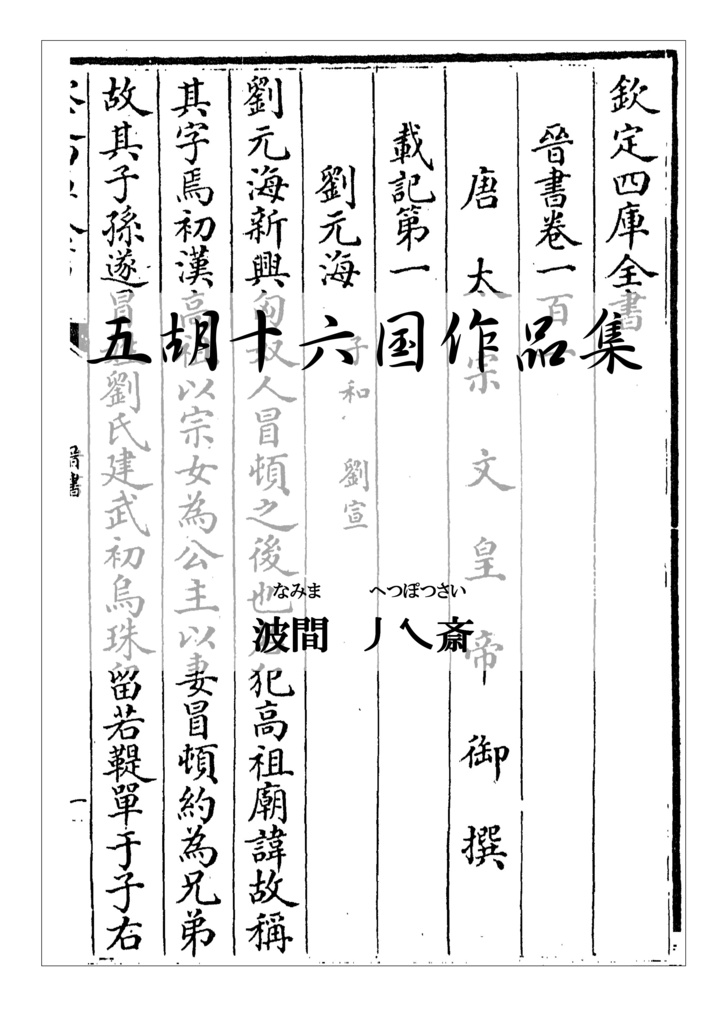 五胡十六国作品集
なみま へつぽつさい
波間 丿乀斎
欽定四庫全書
晉書卷一百一
唐太宗文皇帝御撰
載記第一
劉元海 子和 劉宣
劉元海新興匈奴人冒頓之後也名犯高祖廟諱故稱
其字焉初漢高祖以宗女為公主以妻冒頓約為兄弟
故其子孫遂冒姓劉氏建武初烏珠留若鞮單于子右
晉書
一